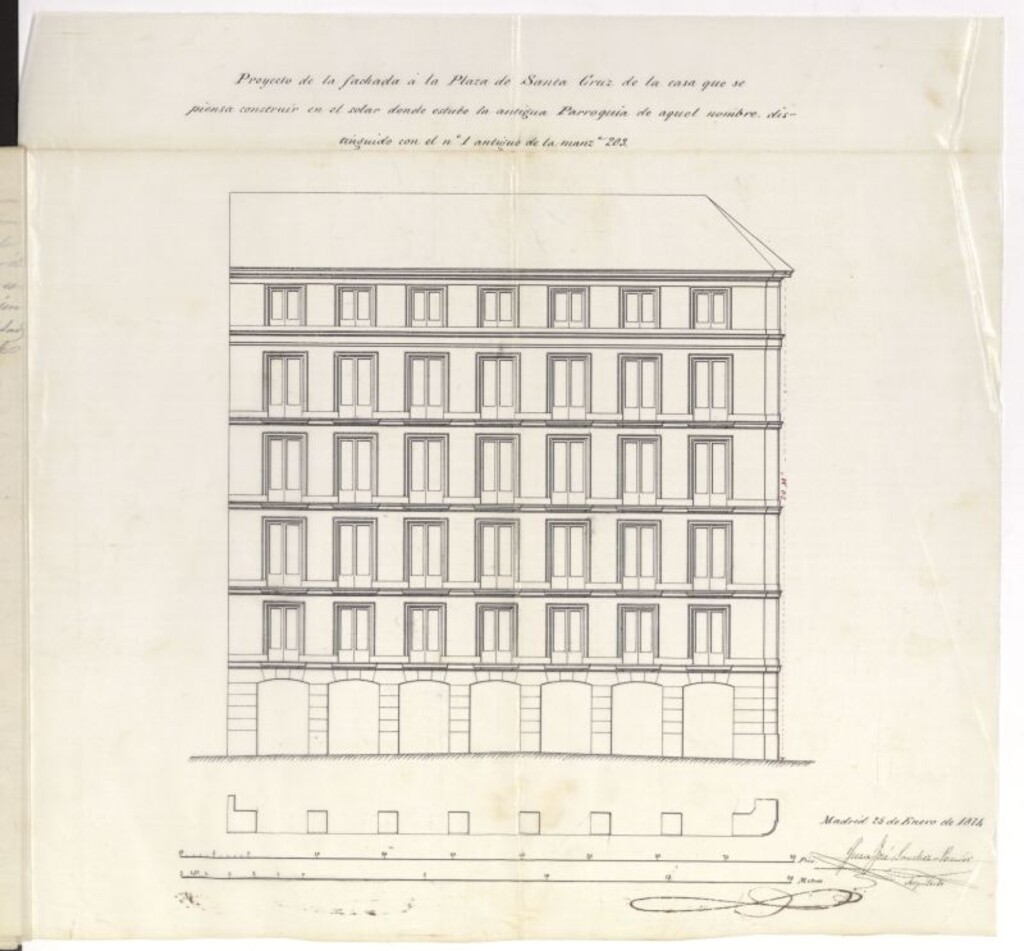 Proyecto de la fachada á la Plaza de Santa Cruz de la casa que se
piensa construir en el solar donde estubo la antigua Parroquia de aquel nombre, dis-
tinguido con el nº 1 antiguo de la manzª 203.
20 M.
Madrid 25 de Enero de 1874
Pies
José Sanchez
Metros
Arquitecto